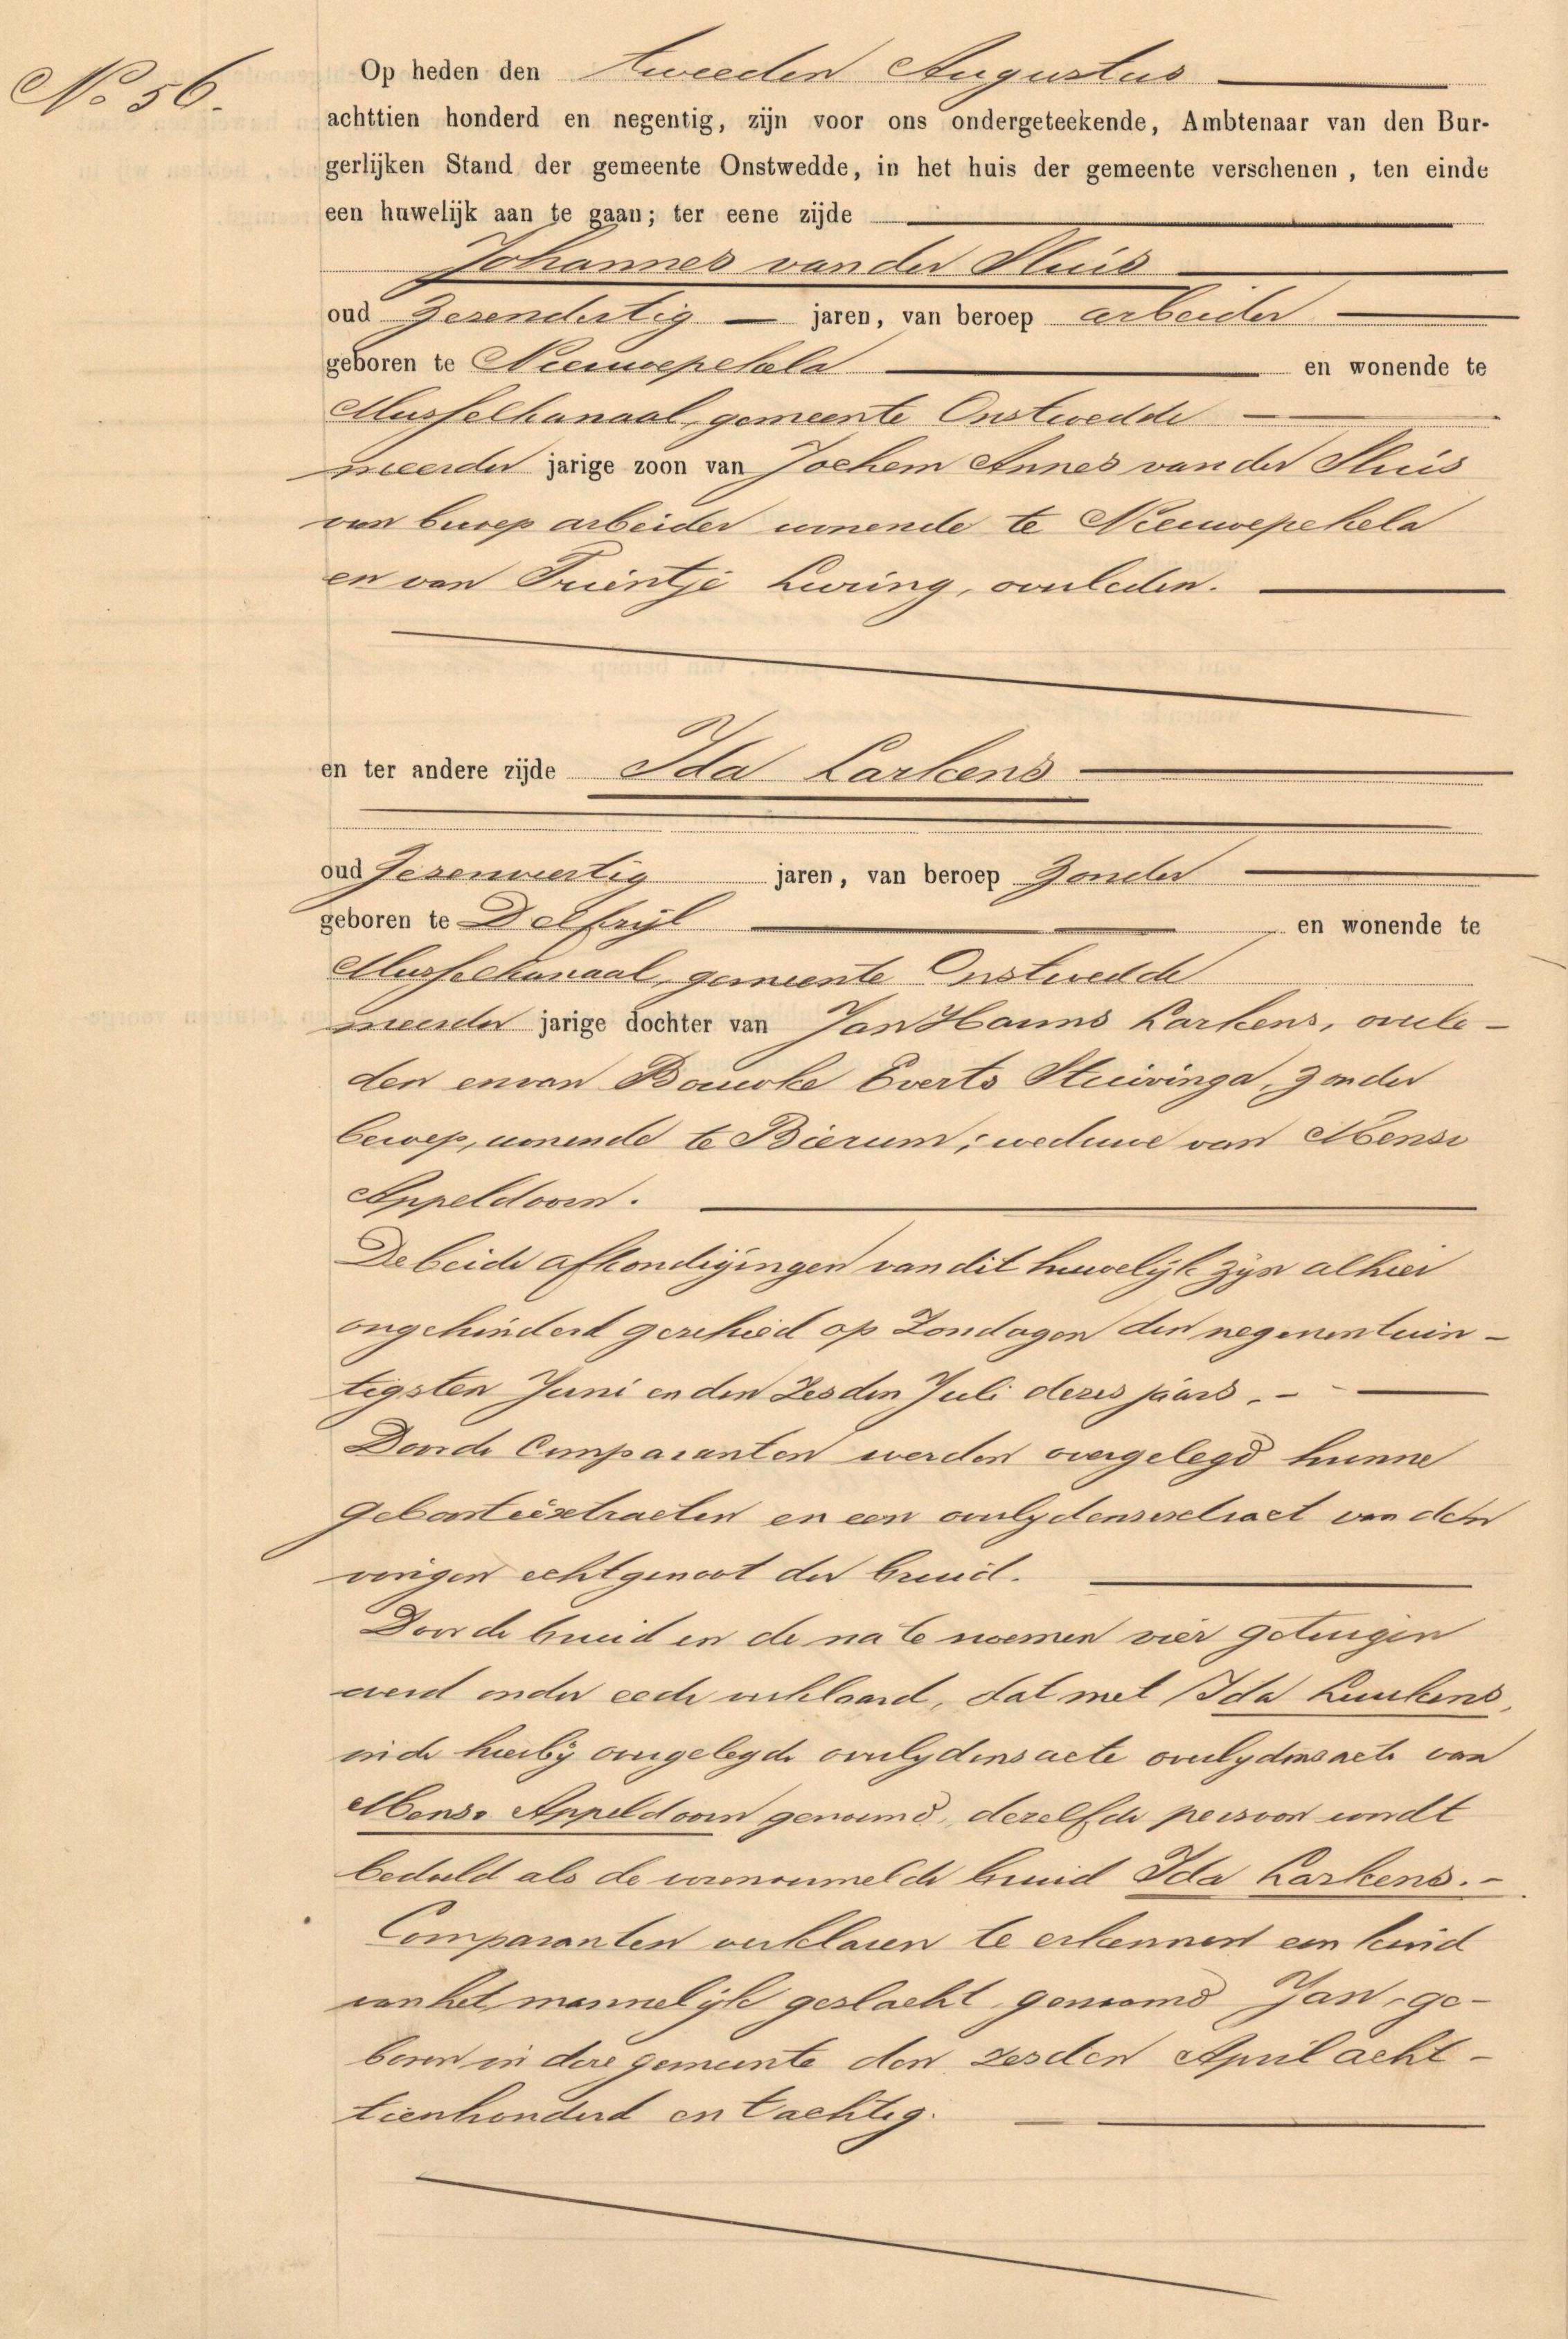 No 56.
Op heden den tweeden Augustus
achttien honderd en negentig, zijn voor ons ondergeteekende, Ambtenaar van den Bur-
gerlijken Stand der gemeente Onstwedde, in het huis der gemeente verschenen, ten einde
een huwelijk aan te gaan; ter eene zijde
Johannes van der Sluis
oud Zesendertig jaren, van beroep arbeider
geboren te Nieuwepekela en wonende te
Musselkanaal, gemeente Onstwedde
meerder jarige zoon van Jochem Annes van der Sluis
van beroep arbeider wonende te Nieuwepekela
en van Trientje Luring, overleden.
en ter andere zijde Ida Larkens
oud Zesenveertig jaren, van beroep Zonder
geboren te Delfzijl en wonende te
Musselkanaal, gemeente Onstwedde
meerder jarige dochter van Jan Harms Larkens, overle-
den en van Bouwke Everts Stuivinga, zonder
beroep, wonende te Bierum; weduwe van Menso
Appeldoorn.
De beide afkondigingen van dit huwelijk zijn alhier
ongehinderd geschied op Zondagen den negenentwin-
tigsten Juni en den Zesden Juli dezes jaars.
Door de Comparanten werden overgelegd hunne
geboorteextracten en een overlijdensextract van den
vorigen echtgenoot der bruid.
Door de bruid en de na te noemen vier getuigen
werd onder eede verklaard, dat met Ida Luurkens,
in de hierbij overgelegde overlijdensacte overlijdensacte van
Menso Appeldoorn genoemd, dezelfde persoon wordt
bedoeld als de voornoemelde bruid Ida Larkens.
Comparanten verklaren te erkennen een kind
van het mannelijk geslacht genaamd Jan, ge-
boren in deze gemeente den zesden April acht-
tienhonderd en tachtig.